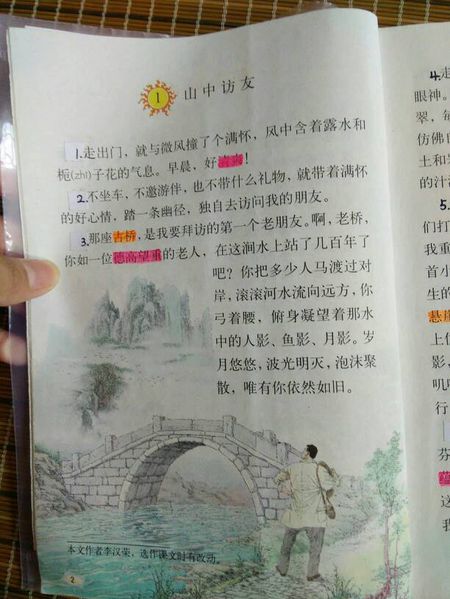 1 山中访友
1.走出门，就与微风撞了个满怀，风中含着露水和
栀(zhī)子花的气息。早晨，好清爽！
2.不坐车，不邀游伴，也不带什么礼物，就带着满怀
的好心情，踏一条幽径，独自去访问我的朋友。
3.那座古桥，是我要拜访的第一个老朋友。啊，老桥，
你如一位德高望重的老人，在这涧水上站了几百年了
吧？你把多少人马渡过对
岸，滚滚河水流向远方，你
弓着腰，俯身凝望着那水
中的人影、鱼影、月影。岁
月悠悠，波光明灭，泡沫聚
散，唯有你依然如旧。
本文作者李汉荣，选作课文时有改动。
2
4.走
眼神。
翠，每
仿佛自
土和岩
的汁液
5.
们打
我重
首小
生的
悬崖
上
影，
叽叽
行
芬
这
我